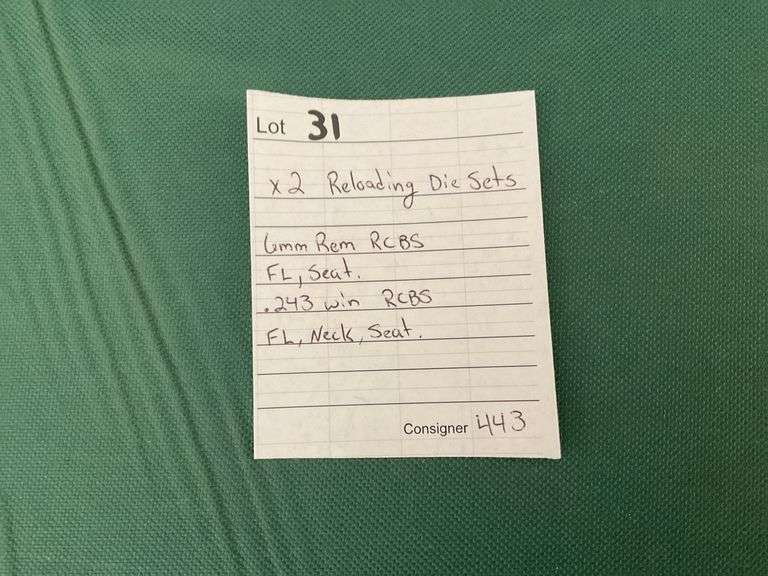 Lot 31
x2 Reloading Die Sets
6mm Rem RCBS
FL, Seat.
.243 win RCBS
FL, Neck, Seat.
Consigner 443